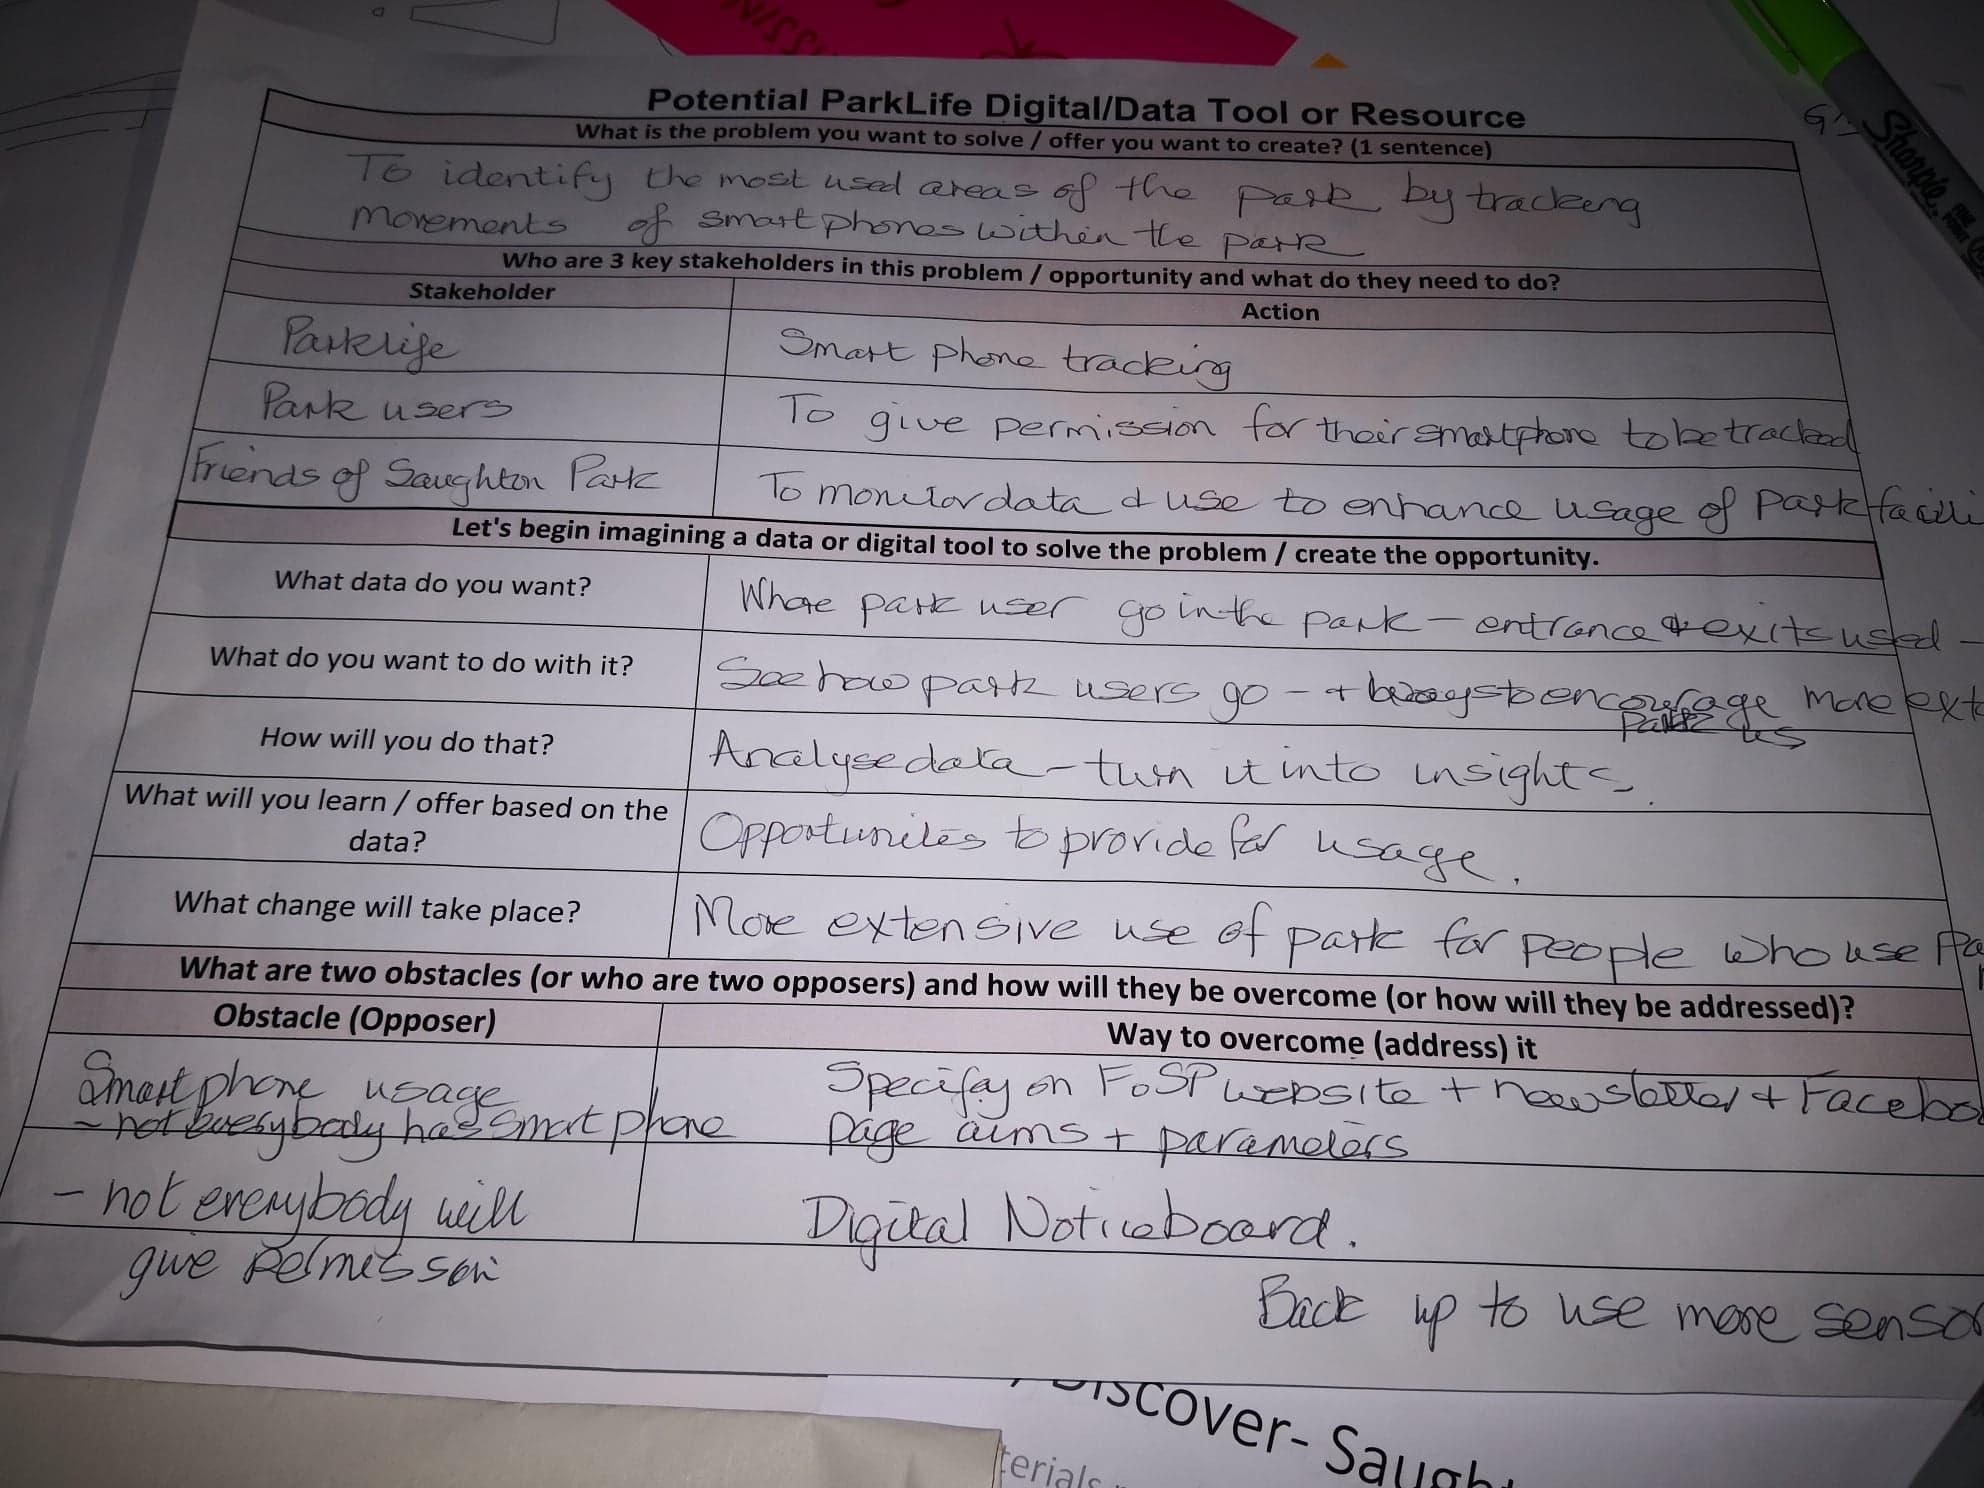 Potential ParkLife Digital/Data Tool or Resource
What is the problem you want to solve / offer you want to create? (1 sentence)
To identify the most used areas of the park by tracking
movements of smart phones within the park
Who are 3 key stakeholders in this problem / opportunity and what do they need to do?
Stakeholder Action
Parklife Smart phone tracking
Park users To give permission for their smartphone to be tracked
Friends of Saughton Park To monitor data & use to enhance usage of park facili
Let's begin imagining a data or digital tool to solve the problem / create the opportunity.
What data do you want? Where park user go in the park - entrance & exits used -
What do you want to do with it? See how park users go - + ways to encourage more ext
park us
How will you do that? Analyse data - turn it into insights.
What will you learn / offer based on the
data? Opportunities to provide for usage.
What change will take place? More extensive use of park for people who use Pa
What are two obstacles (or who are two opposers) and how will they be overcome (or how will they be addressed)?
Obstacle (Opposer) Way to overcome (address) it
Smart phone usage Specifay on FoSP website + newsletter + Facebo
- not everybody has smart phone page aims + parameters
- not everybody will Digital Noticeboard.
give permisson
Back up to use more sensor
Sharpie
Discover- Saugh
terials